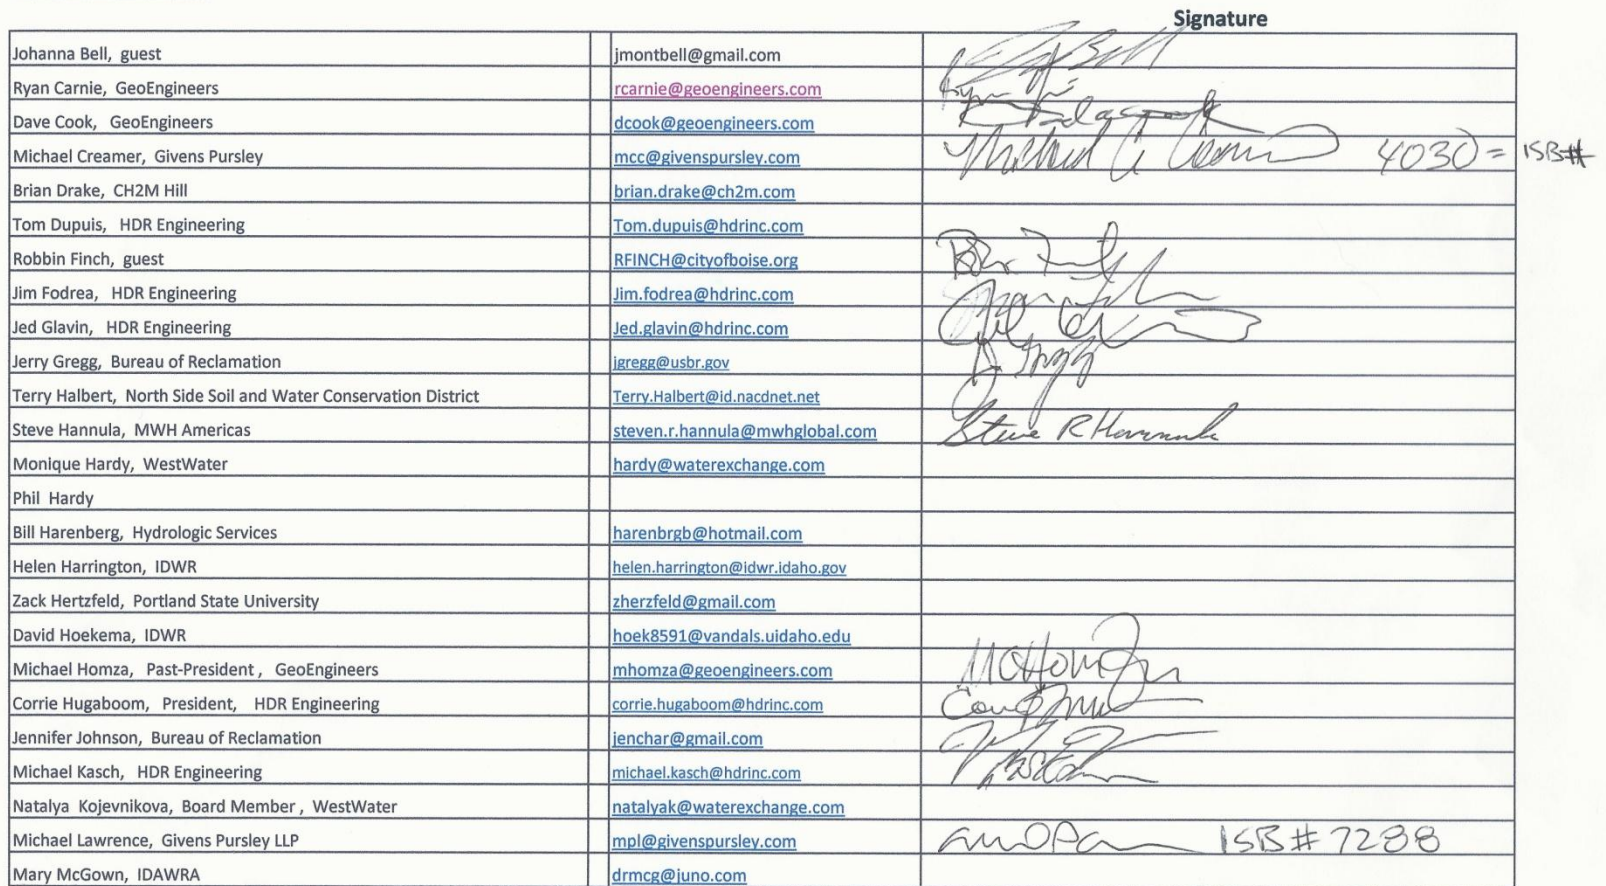 Signature
Johanna Bell, guest jmontbell@gmail.com
Ryan Carnie, GeoEngineers rcarnie@geoengineers.com
Dave Cook, GeoEngineers dcook@geoengineers.com
Michael Creamer, Givens Pursley mcc@givenspursley.com Michael C Creamer 4030 = ISB#
Brian Drake, CH2M Hill brian.drake@ch2m.com
Tom Dupuis, HDR Engineering Tom.dupuis@hdrinc.com
Robbin Finch, guest RFINCH@cityofboise.org
Jim Fodrea, HDR Engineering Jim.fodrea@hdrinc.com
Jed Glavin, HDR Engineering Jed.glavin@hdrinc.com
Jerry Gregg, Bureau of Reclamation jgregg@usbr.gov
Terry Halbert, North Side Soil and Water Conservation District Terry.Halbert@id.nacdnet.net
Steve Hannula, MWH Americas steven.r.hannula@mwhglobal.com Steve R Hannula
Monique Hardy, WestWater hardy@waterexchange.com
Phil Hardy
Bill Harenberg, Hydrologic Services harenbrgb@hotmail.com
Helen Harrington, IDWR helen.harrington@idwr.idaho.gov
Zack Hertzfeld, Portland State University zherzfeld@gmail.com
David Hoekema, IDWR hoek8591@vandals.uidaho.edu
Michael Homza, Past-President , GeoEngineers mhomza@geoengineers.com
Corrie Hugaboom, President, HDR Engineering corrie.hugaboom@hdrinc.com
Jennifer Johnson, Bureau of Reclamation jenchar@gmail.com
Michael Kasch, HDR Engineering michael.kasch@hdrinc.com
Natalya Kojevnikova, Board Member , WestWater natalyak@waterexchange.com
Michael Lawrence, Givens Pursley LLP mpl@givenspursley.com ISB# 7288
Mary McGown, IDAWRA drmcg@juno.com